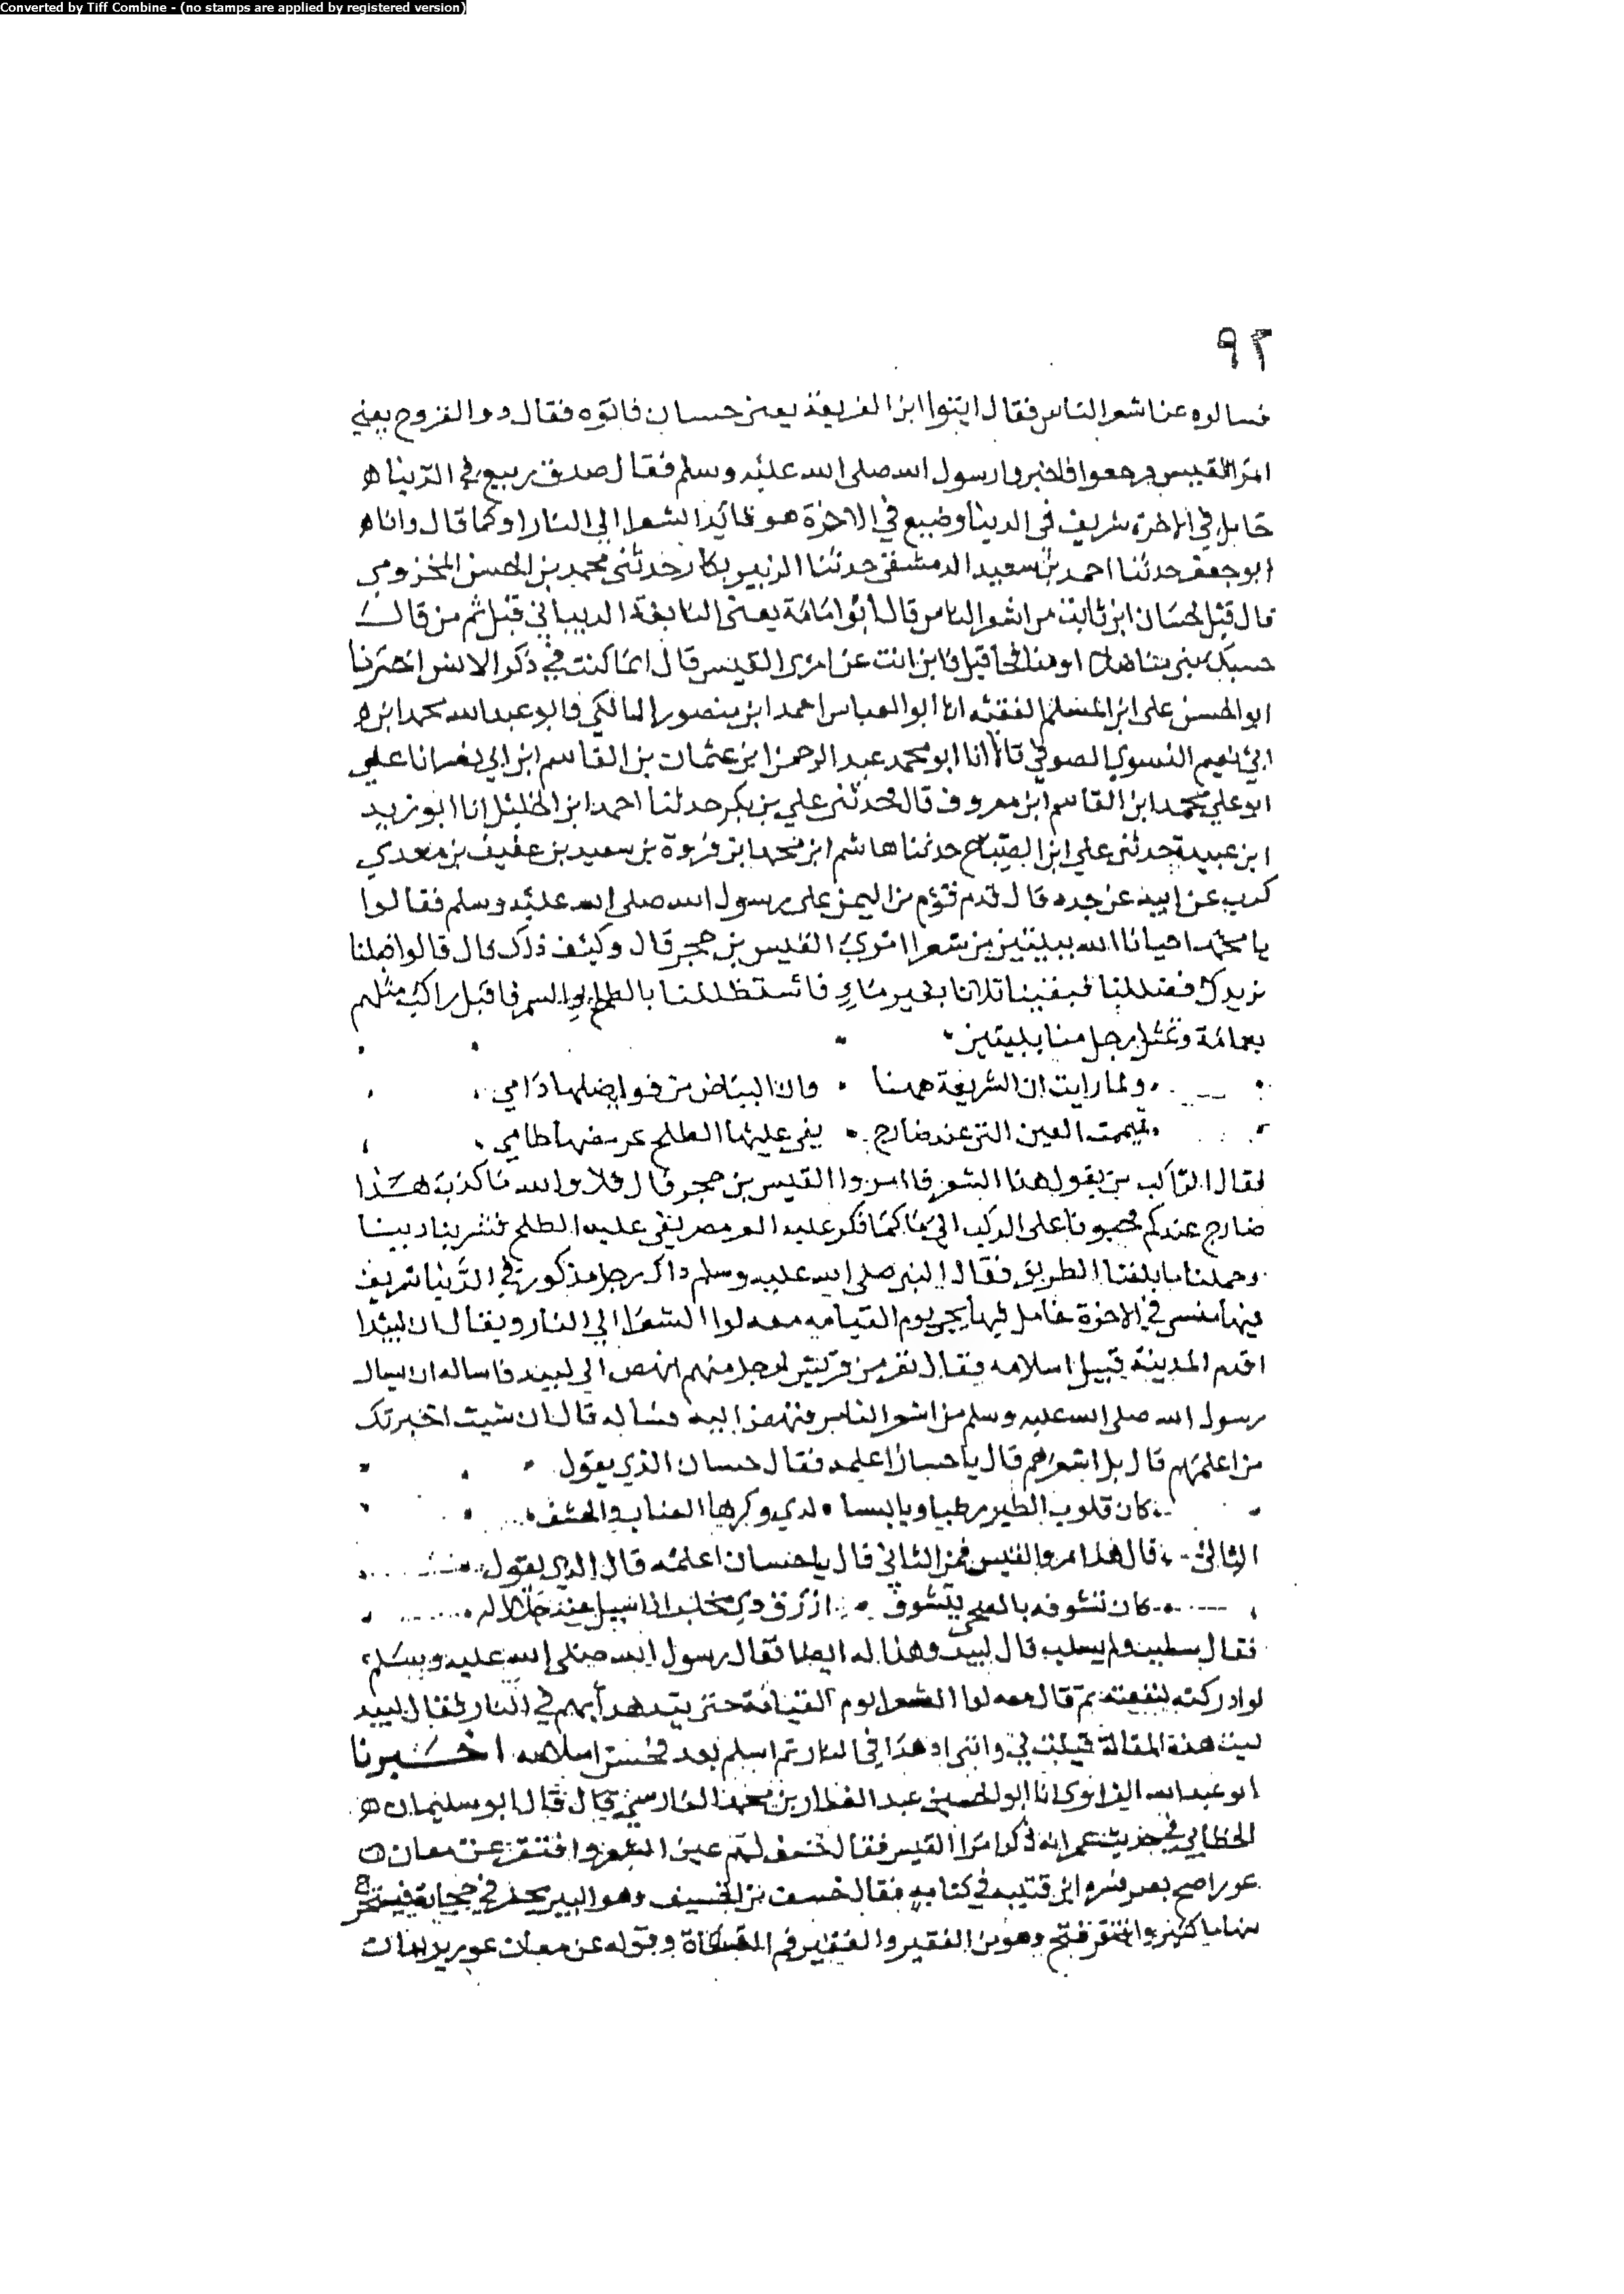 Converted by Tiff Combine - (no stamps are applied by registered version)
٩٢
فسالوه عن اشعر الناس فقال ايتوا ابن الفريعة يعني حسان فاتوه فقال ذو القروح يعني
امرا القيس فرجعوا فاخبروا رسول الله صلى الله عليه وسلم فقال صدق ربيع في الدنيا ه
خامل في الاخرة شريف في الدنيا وضيع في الاخرة هو قائد الشعرا الي النار او كما قال وانا ه
ابو جعفر حدثنا احمد بن سعيد الدمشقي حدثنا الزبير بكار حدثني محمد بن الحسن المخزومي
قال قيل لحسان ابن ثابت من اشعر الناس قال ابو امامة يعني النابغة الذبياني قيل ثم من قال
حسبك بي قيل فاين انت عن امرئ القيس قال انما كنت في ذكر الانس اخبرنا
ابو الحسن علي ابن المسلم الفقيه انا ابو العباس احمد ابن منصور المالكي وابو عبد الله محمد ابن ه
ابي نعيم النسوي الصوفي قالا انا ابو محمد عبد الرحمن ابن عثمان بن القاسم ابن ابي نصر انا علي
ابو علي محمد ابن القاسم ابن معروف قال حدثني علي بن بكر حدثنا احمد ابن الخليل انا ابو زيد
ابن عبيدة حدثني علي ابن الصباح حدثنا هاشم ابن محمد ابن فروة بن سعيد بن عفيف بن معدي
كرب عن ابيه عن جده قال قدم قوم من اليمن على رسول الله صلى الله عليه وسلم فقالوا
يا محمد احيانا الله ببيتين من شعر امرئ القيس بن حجر قال وكيف ذلك قال قالوا اقبلنا
نريدك فضللنا فبقينا ثلاثا بغير ماء فاستظللنا بالطلح والسمر فاقبل راكب متلثم
بعمامة وتمثل رجل منا ببيتين
ولما رايت ان الشريعة همنا وان البياض من فرايصها دامي
تيممت العين التي عند ضارج يفي عليها الطلح عرمضها طامي
فقال الراكب من يقول هذا الشعر قال امروا القيس بن حجر قال فلا والله ما كذب هذا
ضارج عندكم فحبونا على الركب الي ما كما ذكر عليه العرمض يفي عليه الطلح فشربنا ربينا
وحملنا ما بلغنا الطريق فقال النبي صلى الله عليه وسلم ذاك رجل مذكور في الدنيا شريف
فيها منسي في الاخرة خامل فيها يجي يوم القيامة معه لوا الشعرا الي النار ويقال ان لبيدا
اقدم المدينة قبيل اسلامه فقال نفر من قريش لرجل منهم انهض الى لبيد فاساله ان يسال
رسول الله صلى الله عليه وسلم من اشعر الناس فنهض اليه فساله قال ان شيت اخبرتك
من اعلمهم قال بل اشعرهم قال يا حسان اعلمه فقال حسان الذي يقول
كان قلوب الطير رطبا ويابسا لدي وكرها العناب والحشف
البالي قال هذا امرو القيس فمن الثاني قال يا حسان اعلمه قال الذي يقول
كان تشوفه بالضحى تشوف ازرق ذي مخلب اذا
فقال قال لبيد وهذا له ايضا فقال رسول الله صلى الله عليه وسلم
لو ادركته لنفعته ثم قال معه لوا الشعرا يوم القيامة حتى يتدهدأ بهم في النار فقال لبيد
ليت هذه المقالة قيلت لي واني ادهدا في النار ثم اسلم بعد فحسن اسلامه اخبرنا
ابو عبد الله الفراوي انا ابو الحسين عبد الغفار بن محمد الفارسي قال قال ابو سليمان ه
الخطابي في حديث عمر انه ذكر امرا القيس فقال خسف لهم عين الشعر وافتقر عن معان ه
عور اصح بصر فسره ابن قتيبه في كتابه فقال خسف من الخسيف وهو البير يحفر في حجارة فيخرج
منها ما كثير وافتقر فتح وهو من الفقير والفقير فم القناة وقوله عن معان عور يريد ان